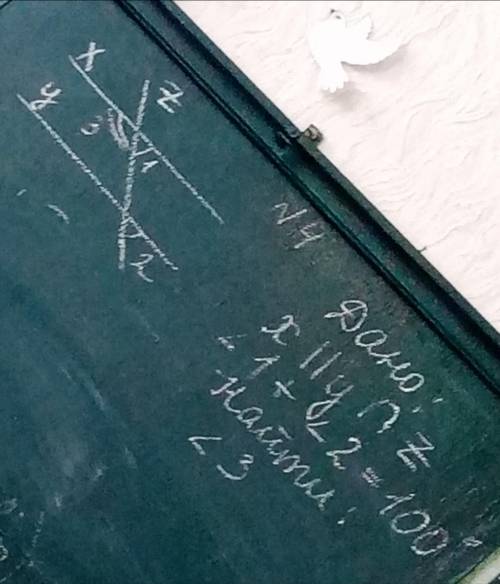 x
y
z
3
1
2
N4
Дано:
x || y ∩ z
∠1 + ∠2 = 100°
Найти:
∠3